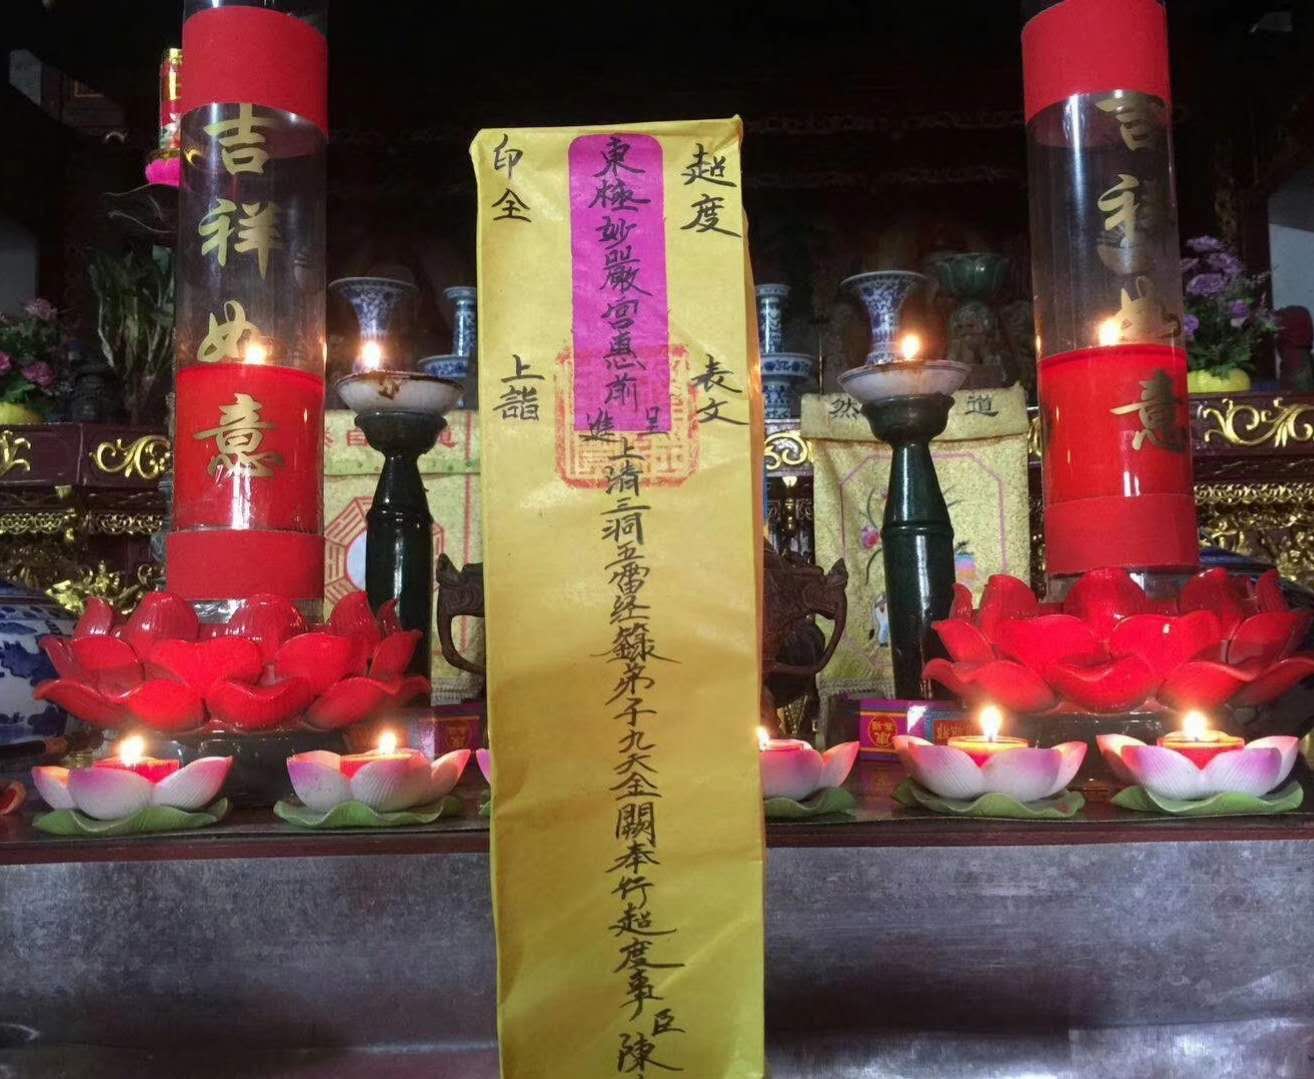 超度
表文
東極妙嚴宮惠前
呈
進
印全
上詣
上清三洞五雷經籙弟子九天金闕奉行超度事臣陳
吉祥如意
吉祥如意
道
然
自然